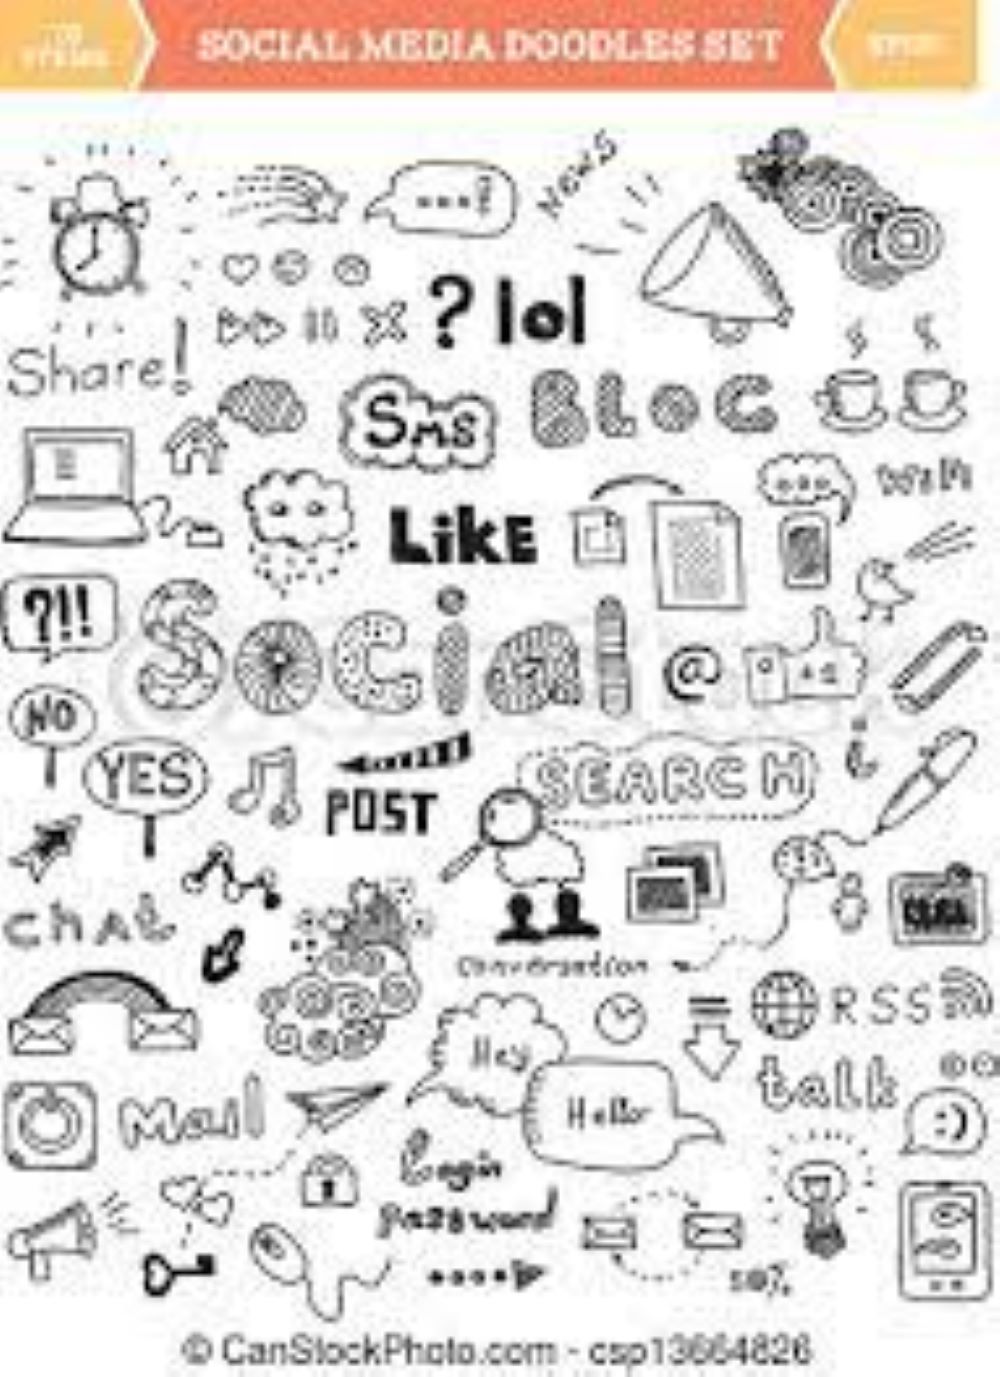 SOCIAL MEDIA DOODLES SET
News
? lol
Share!
Sms
BLOG
WiFi
LikE
?!!
Social
@
NO
YES
SEARCH
POST
i
chat
conversation
RSS
Hey
talk
Hello
Mail
:)
Login
password
50%
© CanStockPhoto.com - csp13664826